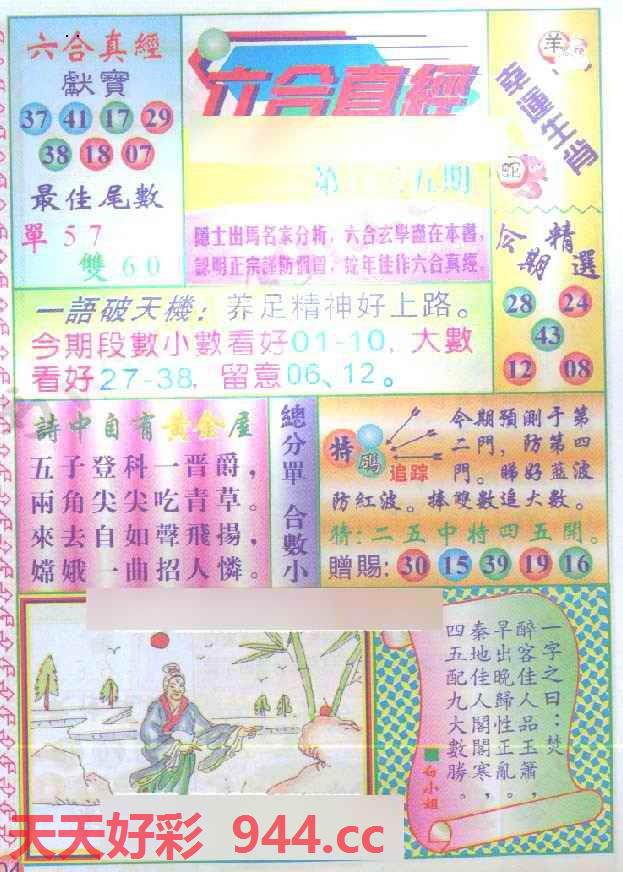 六合真經
獻寶
37 41 17 29
38 18 07
最佳尾數
單57
雙60
六合真經
隱士出馬名家分析，六合玄學盡在本書，
認明正宗謹防假冒，蛇年佳作六合真經。
羊
幸運生肖
蛇
今期精選
28 24
43
12 08
一語破天機：养足精神好上路。
今期段數小數看好01-10，大數
看好27-38，留意06、12。
詩中自有黃金屋
五子登科一晋爵，
兩角尖尖吃青草。
來去自如聲飛揚，
嫦娥一曲招人憐。
總分單 合數小
特碼追踪
今期預測于第
二門，防第四
門。睇好藍波
防紅波。捧雙數追大數。
特：二五中特四五開。
贈賜：30 15 39 19 16
一字之曰：焚
醉客佳人品玉簫，
早出晚歸性正亂。
秦地佳人閣閣寒，
四五配九大數勝。
白小姐
天天好彩 944.cc
04